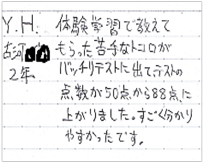 Y.H. 体験学習で教えて
古河 もらった苦手なトコロが
2年 バッチリテストに出て、テストの
点数が50点から88点に
上がりました。すごく分かり
やすかったです。